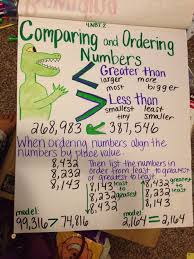 UNIT 2
Comparing and Ordering
Numbers
> Greater than
larger more
most bigger
< Less than
smallest least
tiny smaller
268,983 < 387,546
When ordering numbers align the
numbers by place value.
8,432
8,232
8,143
Then list the numbers in
order from least to greatest
or greatest to least
8,143 least
8,232 to
8,432 greatest
8,432 greatest
8,232 to
8,143 least
model:
99,316 > 74,816
model:
2,164 = 2,164